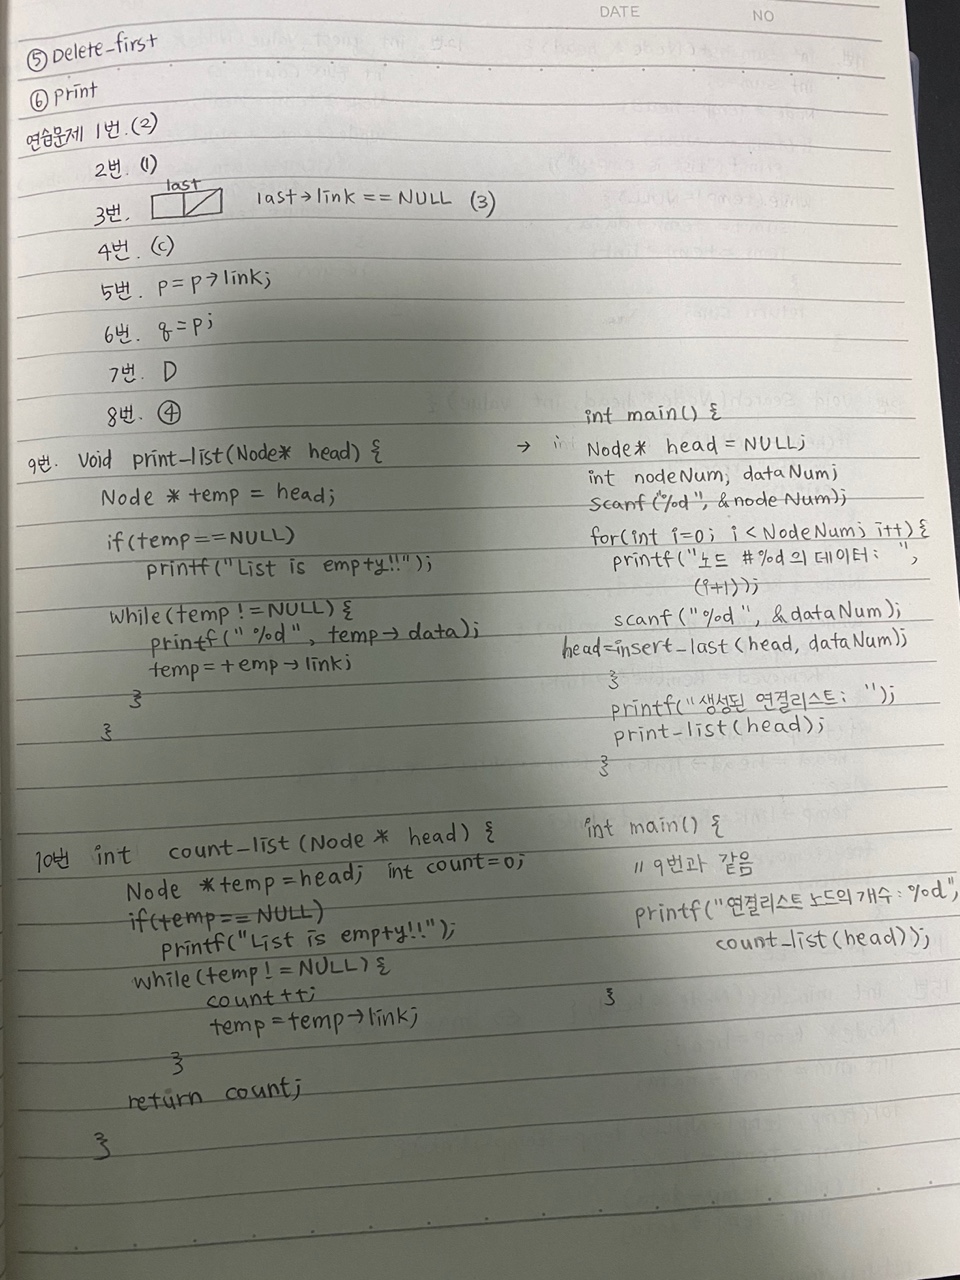 DATE NO
⑤ Delete-first
⑥ print
연습문제 1번.(2)
2번. (1)
last
3번. last→link == NULL (3)
4번. (c)
5번. p=p→link;
6번. q=p;
7번. D
8번. ④
9번. void print-list(Node* head) {
Node * temp = head;
if(temp==NULL)
printf("List is empty!!");
while(temp != NULL) {
printf(" %d", temp→data);
temp=temp→link;
}
}
int main() {
→ in Node* head = NULL;
int nodeNum, dataNum;
scanf("%d", &node Num);
for(int i=0; i<NodeNum; i++) {
printf("노드 #%d의 데이터: ",
(i+1));
scanf("%d", &dataNum);
head=insert_last(head, dataNum);
}
printf("생성된 연결리스트: ");
print-list(head);
}
10번 int count-list (Node * head) {
Node *temp=head; int count=0;
if(temp==NULL)
printf("List is empty!!");
while(temp != NULL) {
count++;
temp=temp→link;
}
return count;
}
int main() {
// 9번과 같음
printf("연결리스트 노드의 개수: %d",
count_list(head));
}